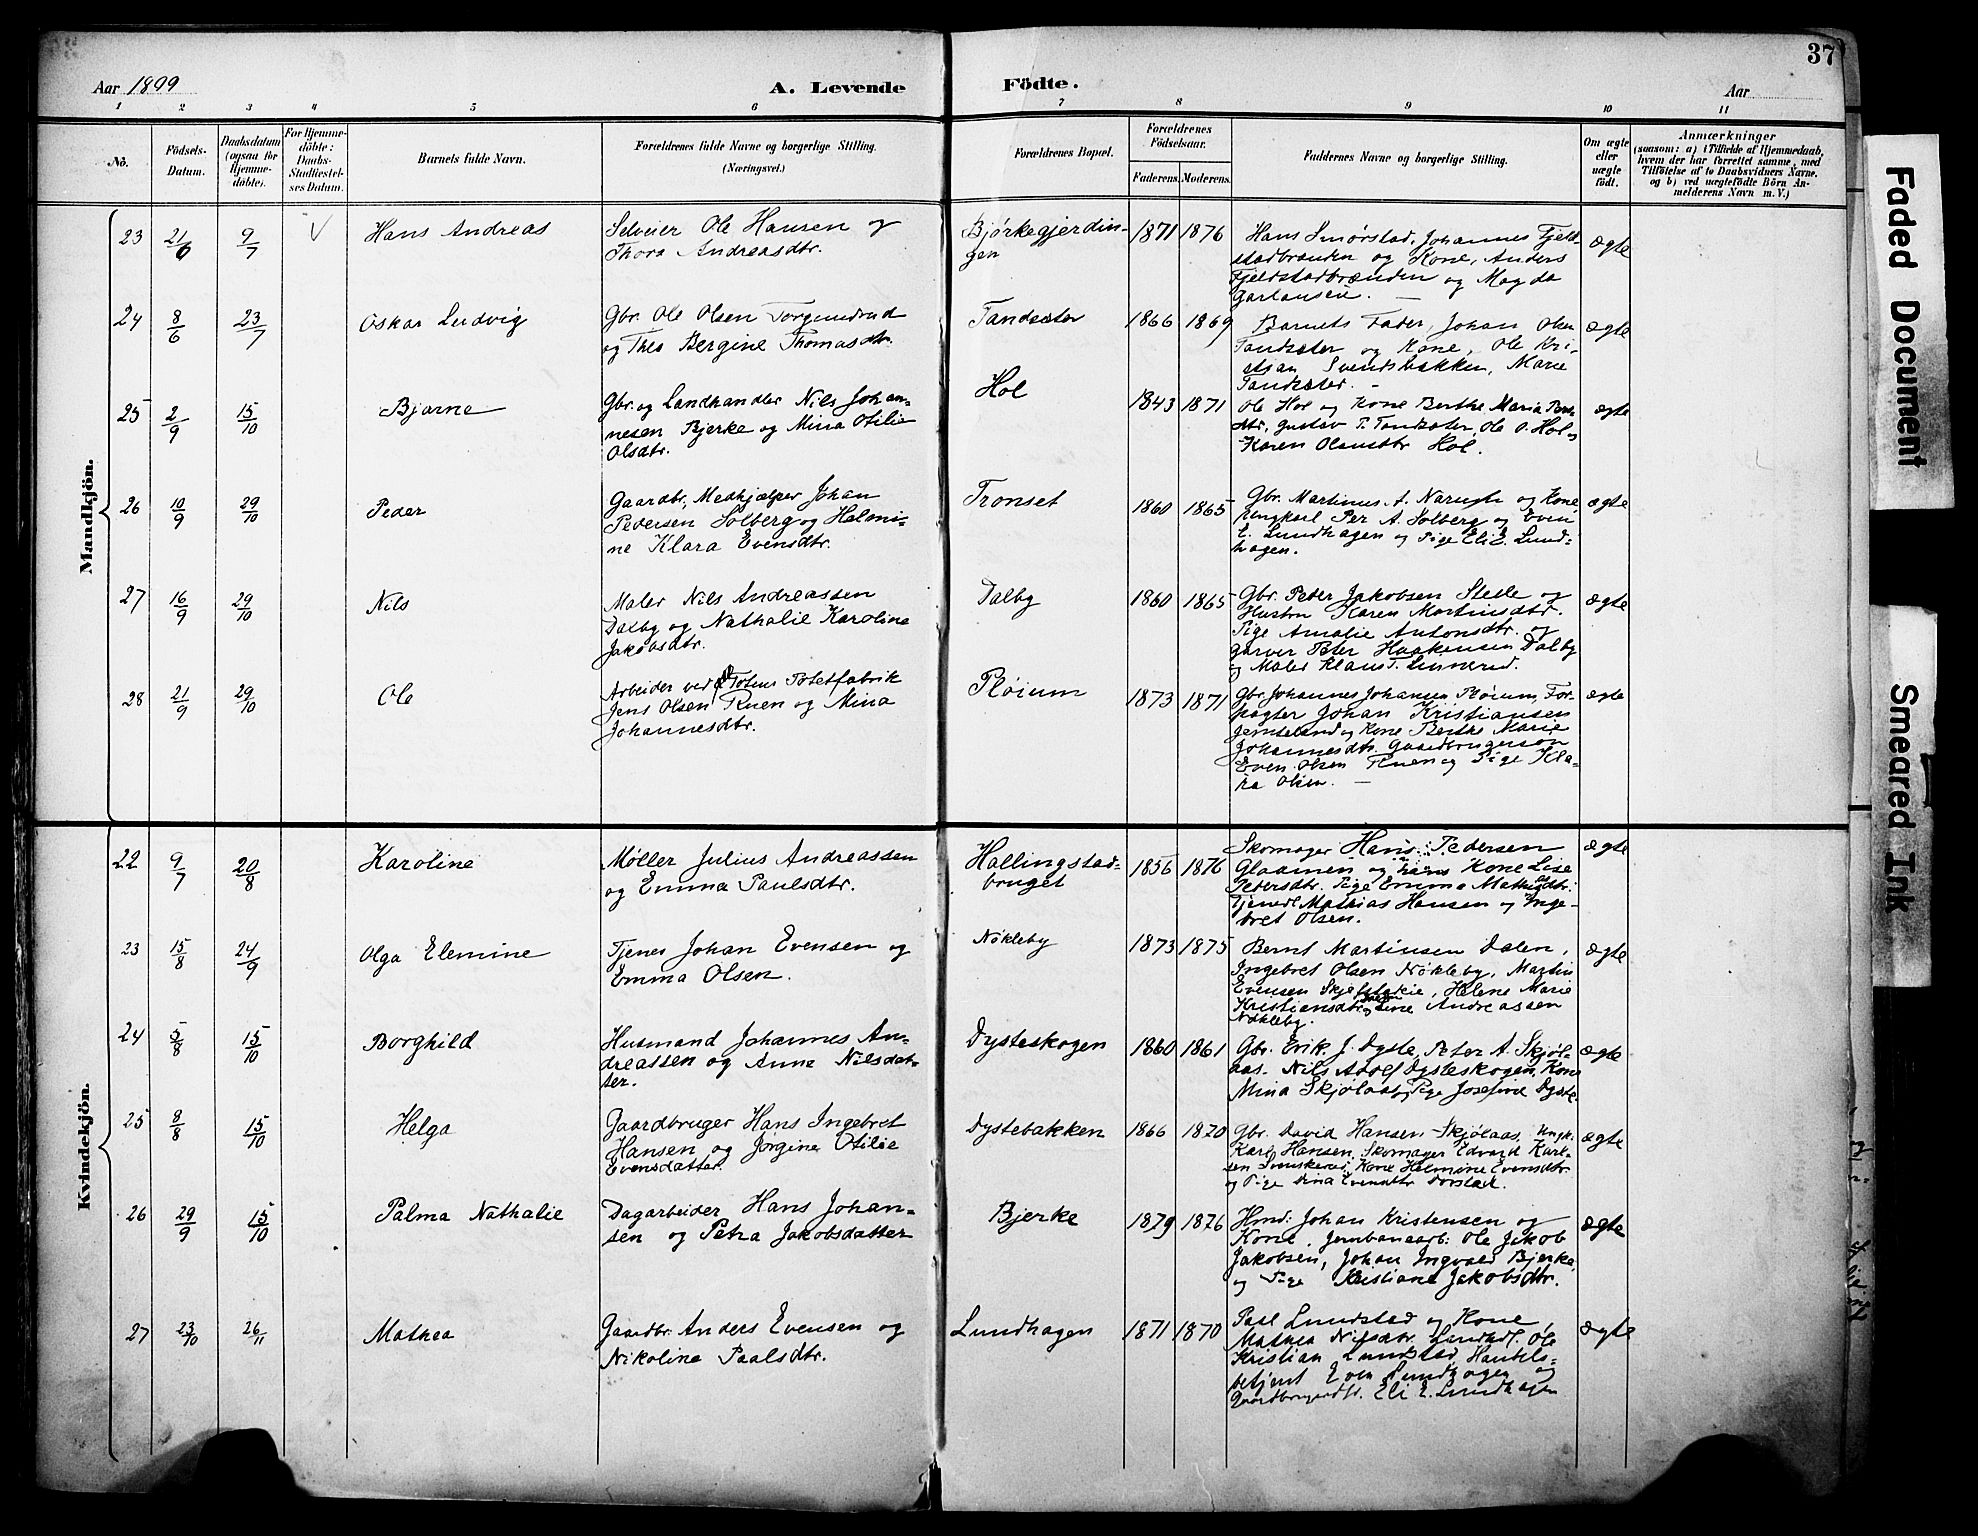 37
Aar 1899
A. Levende Födte.
Aar
1 2 3 4 5 6 7 8 9 10 11
No.
Födsels-Datum.
Daabsdatum (ogsaa for Hjemme-döbte).
For Hjemme-döbte: Daabs-Stadfæstelses Datum.
Barnets fulde Navn.
Forældrenes fulde Navne og borgerlige Stilling. (Næringsvei.)
Forældrenes Bopæl.
Forældrenes Födselsaar.
Faderens. Moderens.
Faddernes Navne og borgerlige Stilling.
Om ægte eller uægte födt.
Anmærkninger
(saasom: a) i Tilfælde af Hjemmedaab,
hvem der har forrettet samme, med
Tilföielse af to Daabsvidners Navne.
og b) ved uægtefödte Börn An-
melderens Navn m.V.)
Mandkjön.
23 21/6 9/7 V Hans Andreas
Selveier Ole Hansen og
Thora Andreasdtr.
Bjørkegjerdin-
gen
1871 1876
Hans Smørstad, Johannes Fjeld-
stadbrænden og Kone, Anders
Fjeldstadbrænden og Magda
ægte
24 8/6 23/7 Oskar Ludvig
Gbr. Ole Olsen Torgunrud
og Thea Bergine Thomasdtr.
Tandsæter
1866 1869
Barnets Fader, Johan Olsen
Tandsæter og Kone, Ole Kri-
stian Svendsbakken, Marie
Tandsæter. -
ægte
25 2/9 15/10 Bjarne
Gbr. og Landhandler Nils Johan-
nesen Bjerke og Mina Otilie
Olsdtr.
Hol
1843 1871
Ole Hol og Kone Berthe Maria
dtr, Gustav T. Tandsæter, Ole O. Hol og
Karen Olausdtr Hol.
ægte
26 10/9 29/10 Peder
Gaardbr, Medhjælper Johan
Pedersen Solberg og Helmi-
ne Klara Evensdtr.
Tronset
1860 1865
Gbr. Martinus A. og Kone,
Ungkarl Per A. Solberg og Even
E. Lundhagen og Pige Eli E. Lund-
hagen.
ægte
27 16/9 29/10 Nils
Maler Nils Andreassen
Dalby og Nathalie Karoline
Jakobsdtr.
Dalby
1860 1865
Gbr. Peter Jakobsen Stele og
Hustru Karen Martinsdtr.
Pige Amalie Antonsdtr. og
garver Peter Haakensen Dalby
og Maler Klaus T.
ægte
28 21/9 29/10 Ole
Arbeider ved Totens Potetfabrik
Jens Olsen Ruen og Mina
Johannesdtr.
Pløium
1873 1871
Gbr. Johannes Johansen Pløium, For-
pagter Johan Kristiansen
og Kone Berthe Marie
Johannesdtr. Gaardbrugerson
Even Olsen Ruen og Pige Kla-
ra Olsen. -
ægte
Kvindekjön.
22 9/7 20/8 Karoline
Møller Julius Andreassen
og Emma Paulsdtr.
Hallingstad-
bruget
1856 1876
Skomager Hans Pedersen
Glaamen og hans Kone Lise
Pedersdtr. Pige Emma Mathisdtr.
Mathias Hansen og Inge-
bret Olsen.
ægte
23 15/8 24/9 Olga Elemine
Tjener Johan Evensen og
Emma Olsen.
Nøkleby
1873 1875
Bernt Martinsen Dalen,
Ingebret Olsen Nøkleby, Martin
Evensen, Helene Marie
Kristiansdtr og Line Andreassen
Nøkleby.
ægte
24 5/8 15/10 Borghild
Husmand Johannes An-
dreassen og Anne Nilsdat-
ter.
Dysteskogen
1860 1861
Gbr. Erik J. Dyste, Peter A. Skjøl-
aas. Nils Adolf Dysteskogen, Kone
Mina Skjølaas og Pige Josefine Dyste.
ægte
25 8/8 15/10 Helga
Gaardbruger Hans Ingebret
Hansen og Jørgine Otilie
Evensdatter.
Dystebakken
1866 1870
Gbr. David Hansen Skjølaas, Ungk.
Karl Hansen, Skomager Edvard Karl-
sen, Kone Helmine Evensdtr
og Pige Dina Evensdtr
ægte
26 29/9 15/10 Palma Nathalie
Dagarbeider Hans Johan-
sen og Petra Jakobsdatter
Bjerke
1879 1876
Hmd. Johan Kristensen og
Kone, Jernbanearb: Ole Jakob
Jakobsen, Johan Ingvald Bjerke,
og Pige Kristiane Jakobsdtr.
ægte
27 23/10 26/11 Mathea
Gaardbr. Anders Evensen og
Nikoline Paalsdtr.
Lundhagen
1871 1870
Paal Lundstad og Kone
Mathea Nilsdtr. Ole
Kristian Lundstad, Handels-
betjent Even Lundhagen og
Eli E. Lundhagen
ægte
Faded Document
Smeared Ink